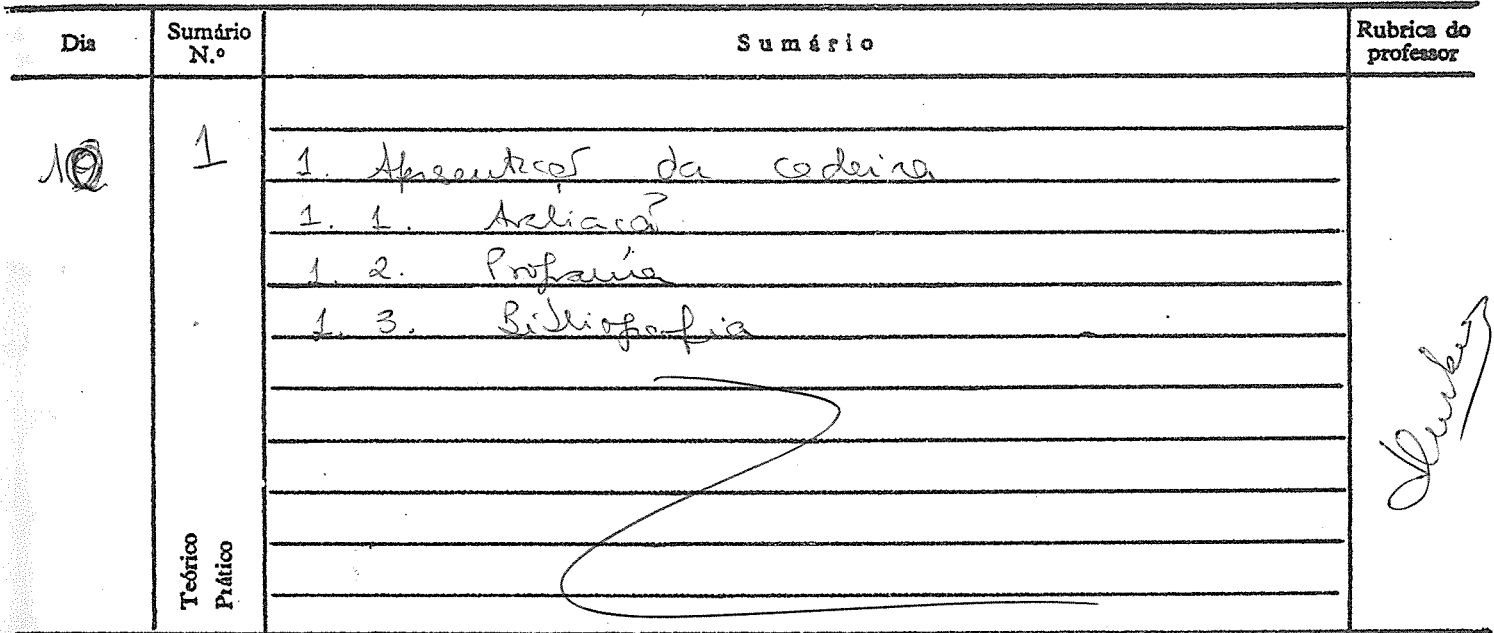 Dia Sumário N.º Sumário Rubrica do professor
1
1. Apresentação da cadeira
1. 1. Avaliação
1. 2. Programa
1. 3. Bibliografia
Teórico
Prático